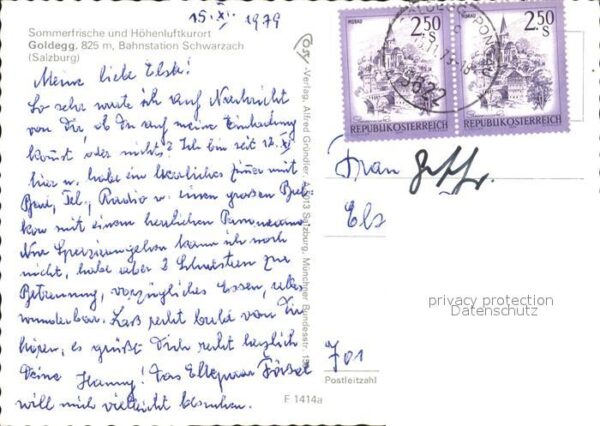 15. XI. 1979
Sommerfrische und Höhenluftkurort
Goldegg, 825 m, Bahnstation Schwarzach
(Salzburg)
Meine liebe Elsk!
So sehr warte ich auf Nachricht
von Dir, ob Du auf meine Einladung
kommst oder nicht? Ich bin seit 12. XI.
hier u. habe ein herrliches Zimmer mit
Bad, Tel., Radio u. einen großen Bal-
kon mit einem herrlichen Panorama
Nur Spazierengehen kann ich noch
nicht, habe aber 2 Schwestern zur
Betreuung, vorzügliches Essen, alles
wunderbar. Laß recht bald von Dir
hören, es grüßt Dich recht herzlich
Deine Hanny! Das Ehepaar
will mich vielleicht besuchen.
Cosy-Verlag, Alfred Gründler, 5013 Salzburg, Münchner Bundesstr.
F 1414a
MURAU
2.50 S
REPUBLIK ÖSTERREICH
MURAU
2.50 S
REPUBLIK ÖSTERREICH
5622
Frau
Els
privacy protection
Datenschutz
701
Postleitzahl